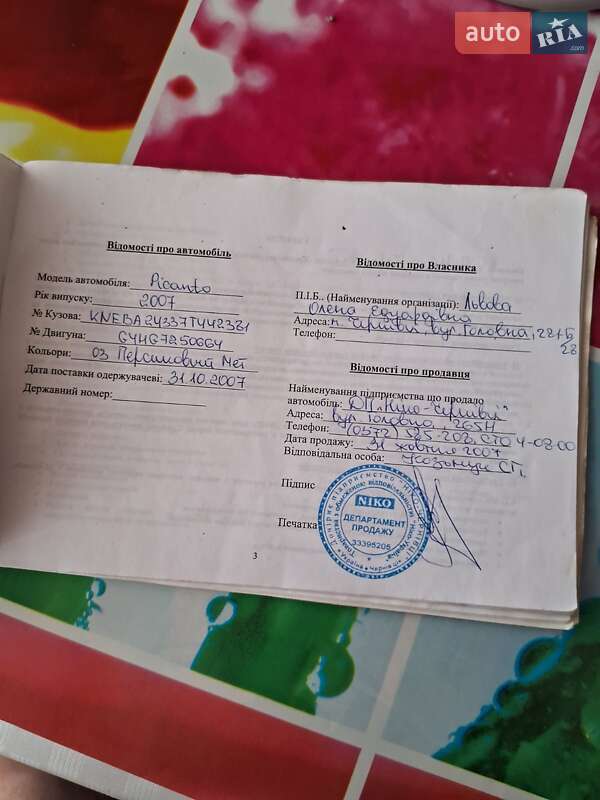 auto RIA.com
Відомості про автомобіль
Модель автомобіля: Picanto
Рік випуску: 2007
№ Кузова: KNEBA24337T442321
№ Двигуна: G4HG7250664
Кольори: 03 Персиковий Мет
Дата поставки одержувачеві: 31.10.2007
Державний номер:
3
Відомості про Власника
П.І.Б., (Найменування організації): Львова
Олена Едуардівна
Адреса: м. Чернівці вул. Головна,
28
Телефон:
Відомості про продавця
Найменування підприємства що продало
автомобіль: ДП "Ніко-Чернівці"
Адреса: вул Головна, 265Н
Телефон: (0372) 585-202, СТО 4-02-00
Дата продажу: 31 жовтня 2007
Відповідальна особа:
Підпис
Печатка
NIKO
ДЕПАРТАМЕНТ
ПРОДАЖУ
33395205